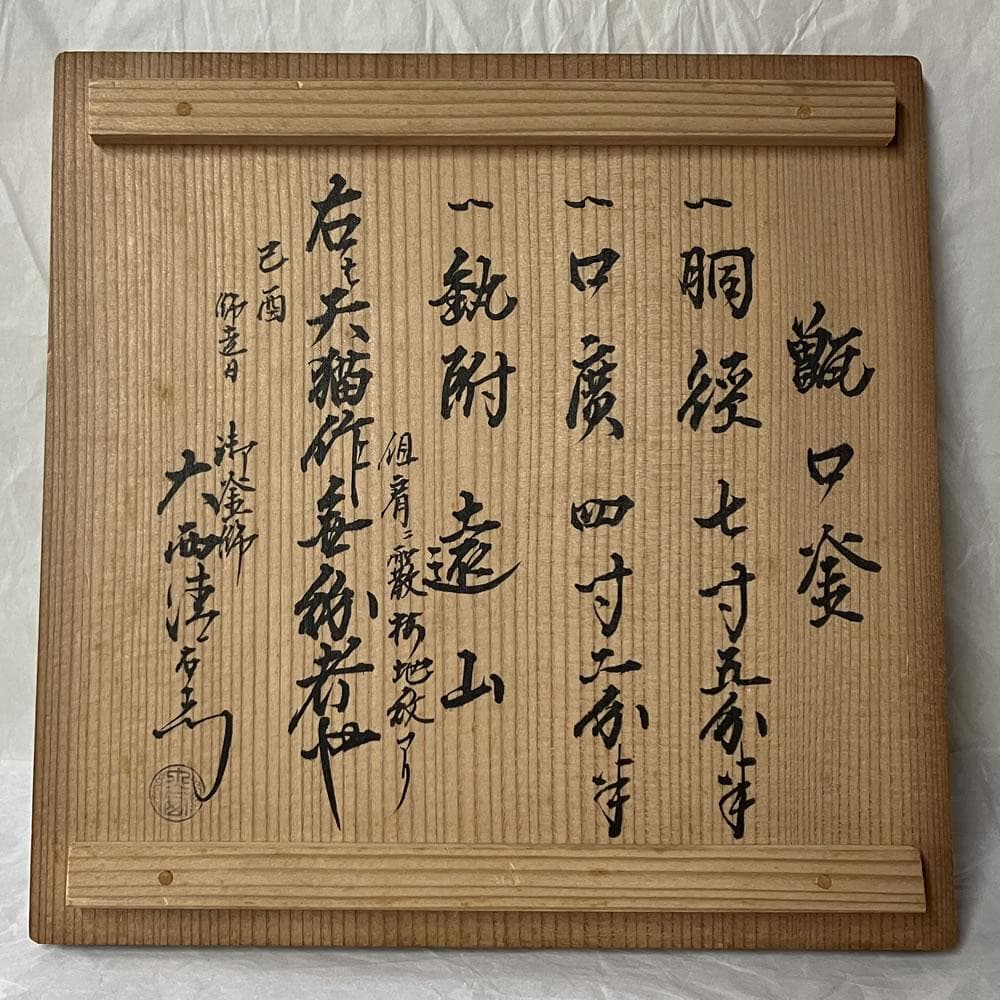 甑口釜
一胴徑 七寸五分半
一口廣 四寸二分半
一釻附 遠山
但肩ニ霰梅地紋アリ
右ハ天猫作無紛者也
己酉
師走日
御釜師
大西清右衛門